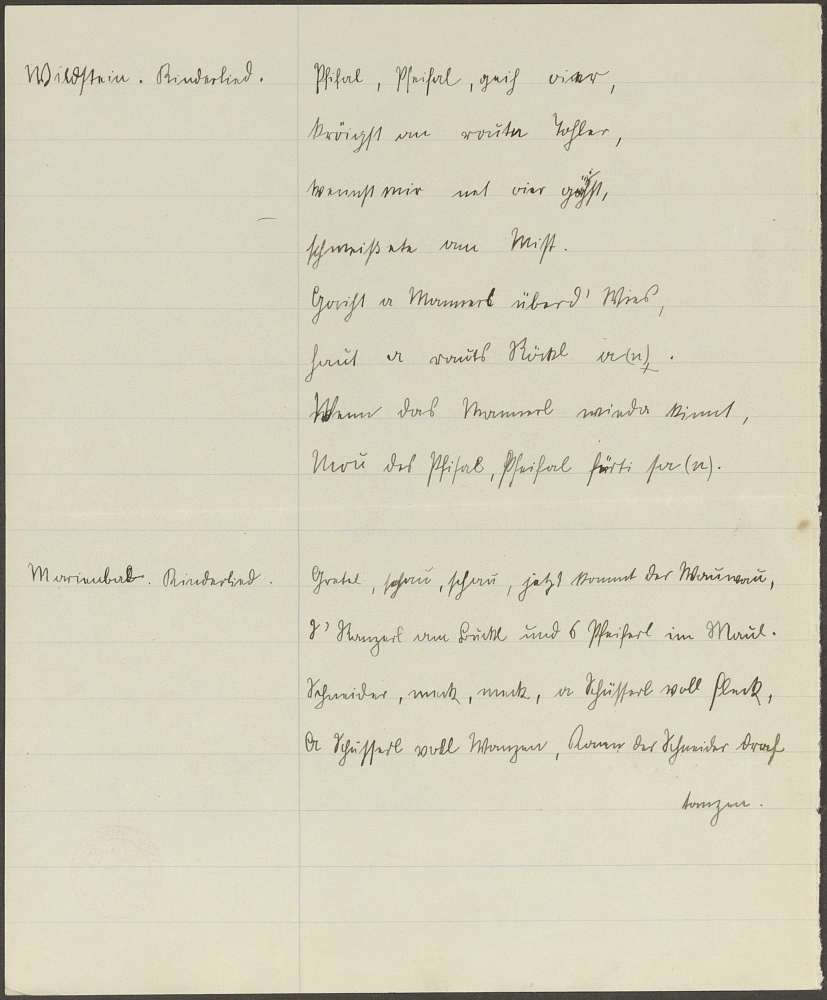 Wildstein. Kinderlied.
Pfifal, Pfeifal, geih oier,
kröigst an routa Tohler,
wennst mir net oier gähst,
schmeiß ete am Mist.
Goiht a Mannerl überd' Wies,
haut a routs Röckl a(n).
Wenn das Mannerl wieda kinnt,
Mou des Pfifal, Pfeifal firti sa(n).
Marienbad. Kinderlied.
Gretel, schau, schau, jetzt kommt der Wauwau,
s' Ranzerl am Buckl und s Pfeiferl im Maul.
Schneider, meck, meck, a Schüsserl voll Fleck,
A Schüsserl voll Wanzen, kann der Schneider draf
tanzen.